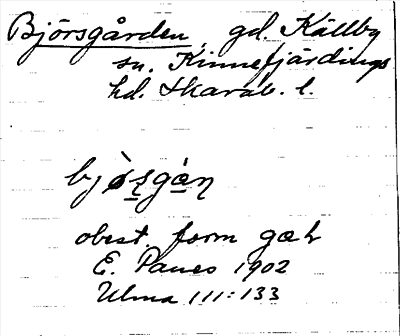 Björsgården, gd. Källby
sn. Kinnefjärdings
hd. Skarab. l.
björgàn
obest. form gæḷ
E. Panes 1902
Ulma 111:133